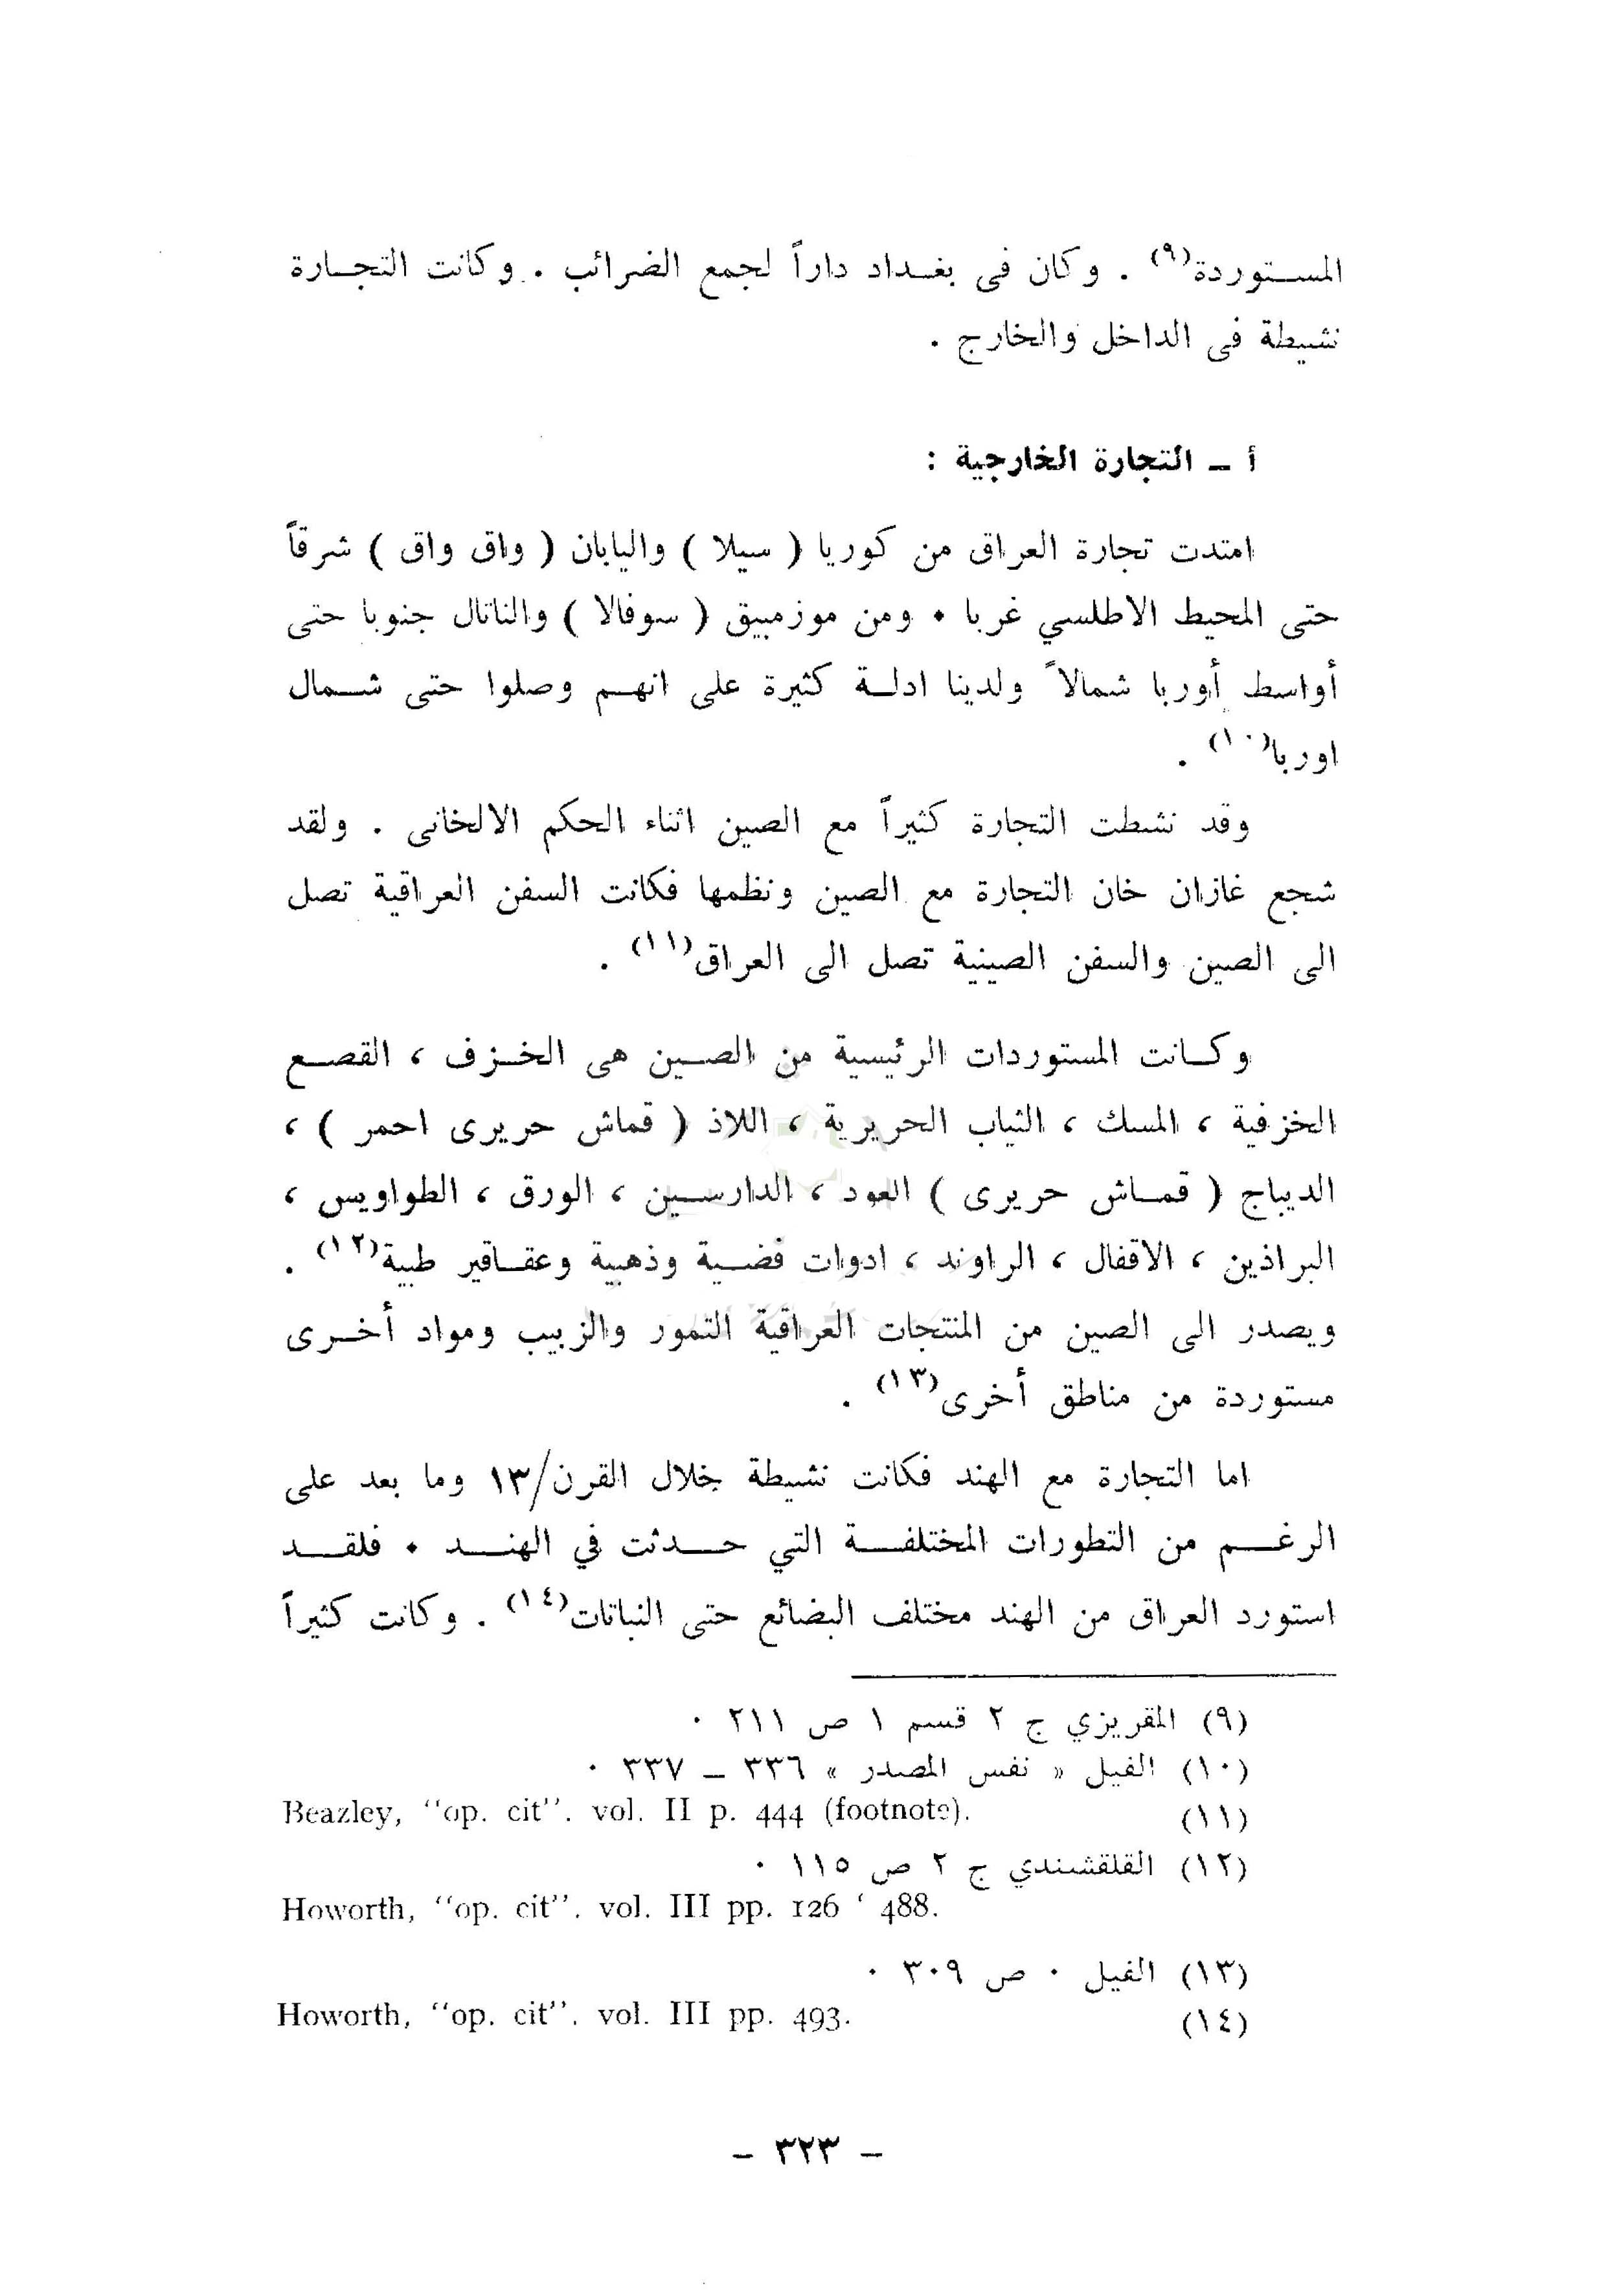 المستوردة(٩) . وكان فى بغداد داراً لجمع الضرائب . وكانت التجارة
نشيطة فى الداخل والخارج .
أ – التجارة الخارجية :
امتدت تجارة العراق من كوريا ( سيلا ) واليابان ( واق واق ) شرقاً
حتى المحيط الاطلسي غربا . ومن موزمبيق ( سوفالا ) والناتال جنوبا حتى
أواسط أوربا شمالاً ولدينا ادلة كثيرة على انهم وصلوا حتى شمال
اوربا(١٠) .
وقد نشطت التجارة كثيراً مع الصين اثناء الحكم الالخانى . ولقد
شجع غازان خان التجارة مع الصين ونظمها فكانت السفن العراقية تصل
الى الصين والسفن الصينية تصل الى العراق(١١) .
وكانت المستوردات الرئيسية من الصين هى الخزف ، القصع
الخزفية ، المسك ، الثياب الحريرية ، اللاذ ( قماش حريرى احمر ) ،
الديباج ( قماش حريرى ) العود ، الدارسين ، الورق ، الطواويس ،
البراذين ، الاقفال ، الراوند ، ادوات فضية وذهبية وعقاقير طبية(١٢) .
ويصدر الى الصين من المنتجات العراقية التمور والزبيب ومواد أخرى
مستوردة من مناطق أخرى(١٣) .
اما التجارة مع الهند فكانت نشيطة خلال القرن/١٣ وما بعد على
الرغم من التطورات المختلفة التي حدثت في الهند . فلقد
استورد العراق من الهند مختلف البضائع حتى النباتات(١٤) . وكانت كثيراً
(٩) المقريزي ج ٢ قسم ١ ص ٢١١ .
(١٠) الفيل « نفس المصدر » ٣٣٦ – ٣٣٧ .
(١١) Beazley, "op. cit". vol. II p. 444 (footnote).
(١٢) القلقشندي ج ٢ ص ١١٥ .
Howorth, "op. cit". vol. III pp. 126 ‘ 488.
(١٣) الفيل . ص ٣٠٩ .
(١٤) Howorth, "op. cit". vol. III pp. 493.
– ٣٢٣ –